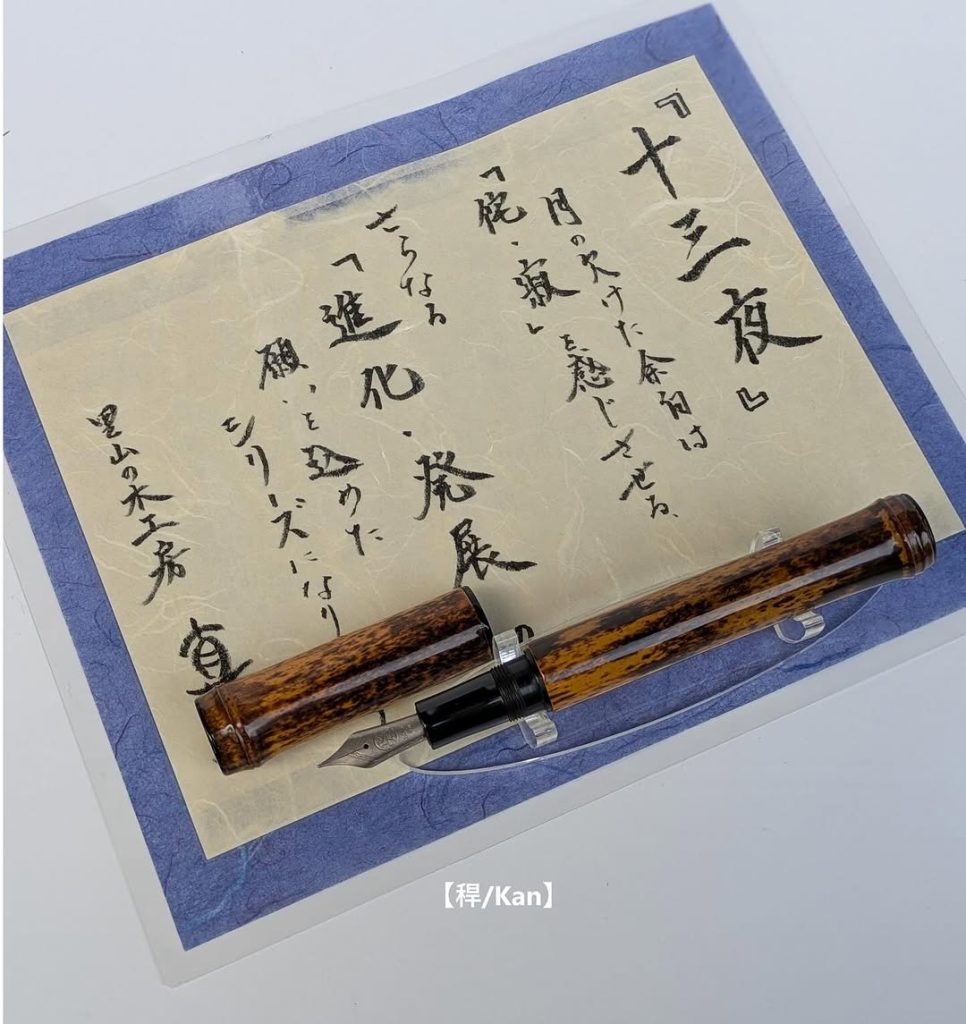 『十三夜』
月の欠けた余白は
「侘・寂」を感じさせる、
さらなる
「進化・発展
願いを込めた
シリーズになり
里山の木工房 直
【稈/Kan】